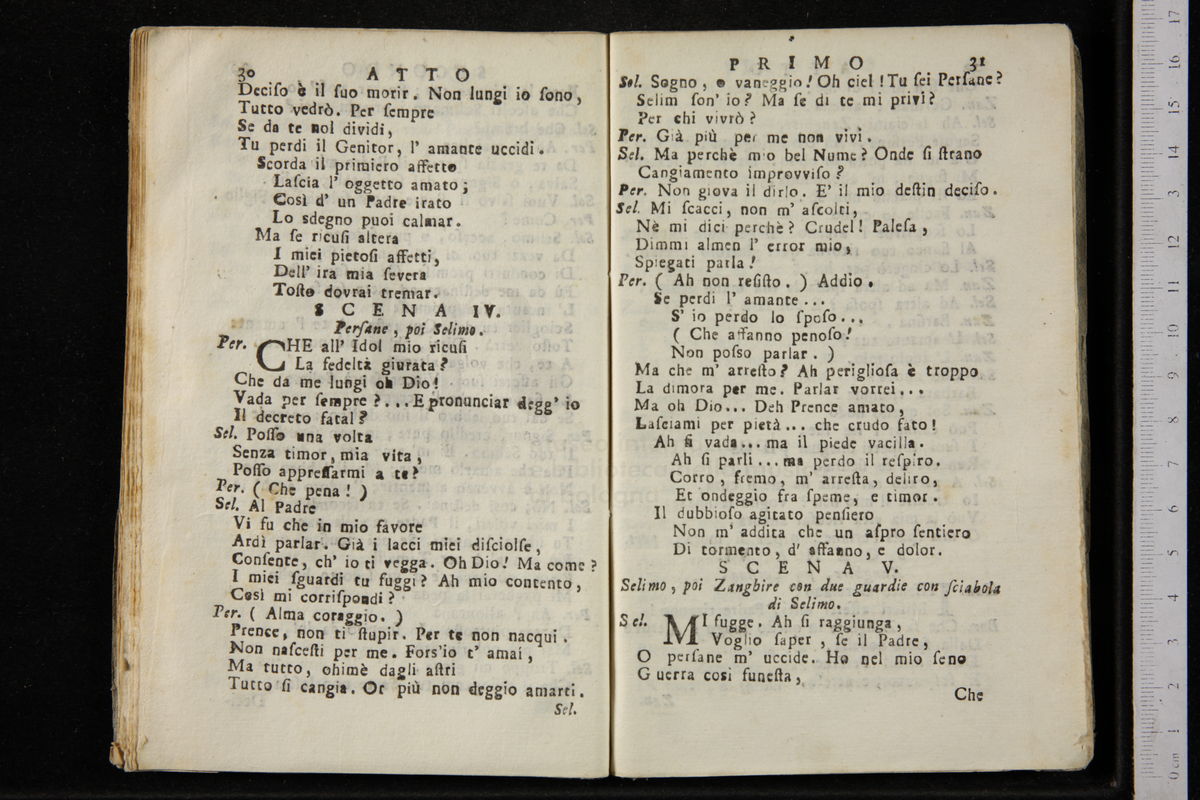 30 ATTO
Deciſo è il ſuo morir. Non lungi io ſono,
Tutto vedrò. Per ſempre
Se da te nol dividi,
Tu perdi il Genitor, l' amante uccidi.
Scorda il primiero affetto
Laſcia l' oggetto amato;
Così d' un Padre irato
Lo sdegno puoi calmar.
Ma ſe ricuſi altera
I miei pietoſi affetti,
Dell' ira mia ſevera
Toſto dovrai tremar.
SCENA IV.
Perſane, poi Selimo.
Per. CHE all' Idol mio ricuſi
La fedeltà giurata?
Che da me lungi oh Dio!
Vada per ſempre?... E pronunciar degg' io
Il decreto fatal?
Sel. Poſſo una volta
Senza timor, mia vita,
Poſſo appreſſarmi a te?
Per. (Che pena!)
Sel. Al Padre
Vi fu che in mio favore
Ardì parlar. Già i lacci miei diſciolſe,
Conſente, ch' io ti vegga. Oh Dio! Ma come?
I miei ſguardi tu fuggi? Ah mio contento,
Così mi corriſpondi?
Per. (Alma coraggio.)
Prence, non ti ſtupir. Per te non nacqui.
Non naſceſti per me. Fors'io t' amai,
Ma tutto, ohimè dagli aſtri
Tutto ſi cangia. Or più non deggio amarti.
Sel.
PRIMO 31
Sel. Sogno, o vaneggio! Oh ciel! Tu ſei Perſane?
Selim ſon' io? Ma ſe di te mi privi?
Per chi vivrò?
Per. Già più per me non vivi.
Sel. Ma perchè mio bel Nume? Onde ſi ſtrano
Cangiamento improvviſo?
Per. Non giova il dirlo. E' il mio deſtin deciſo.
Sel. Mi ſcacci, non m' aſcolti,
Nè mi dici perchè? Crudel! Paleſa,
Dimmi almen l' error mio,
Spiegati parla!
Per. (Ah non reſiſto.) Addio.
Se perdi l' amante...
S' io perdo lo ſpoſo...
(Che affanno penoſo!
Non poſso parlar.)
Ma che m' arreſto? Ah periglioſa è troppo
La dimora per me. Parlar vorrei...
Ma oh Dio... Deh Prence amato,
Laſciami per pietà... che crudo fato!
Ah ſi vada... ma il piede vacilla.
Ah ſi parli... ma perdo il reſpiro.
Corro, fremo, m' arreſta, deliro,
Et ondeggio fra ſpeme, e timor.
Il dubbioſo agitato penſiero
Non m' addita che un aſpro ſentiero
Di tormento, d' affanno, e dolor.
SCENA V.
Selimo, poi Zanghire con due guardie con ſciabola
di Selimo.
Sel. MI fugge. Ah ſi raggiunga,
Voglio ſaper, ſe il Padre,
O perſane m' uccide. Ho nel mio ſeno
Guerra così funeſta,
Che